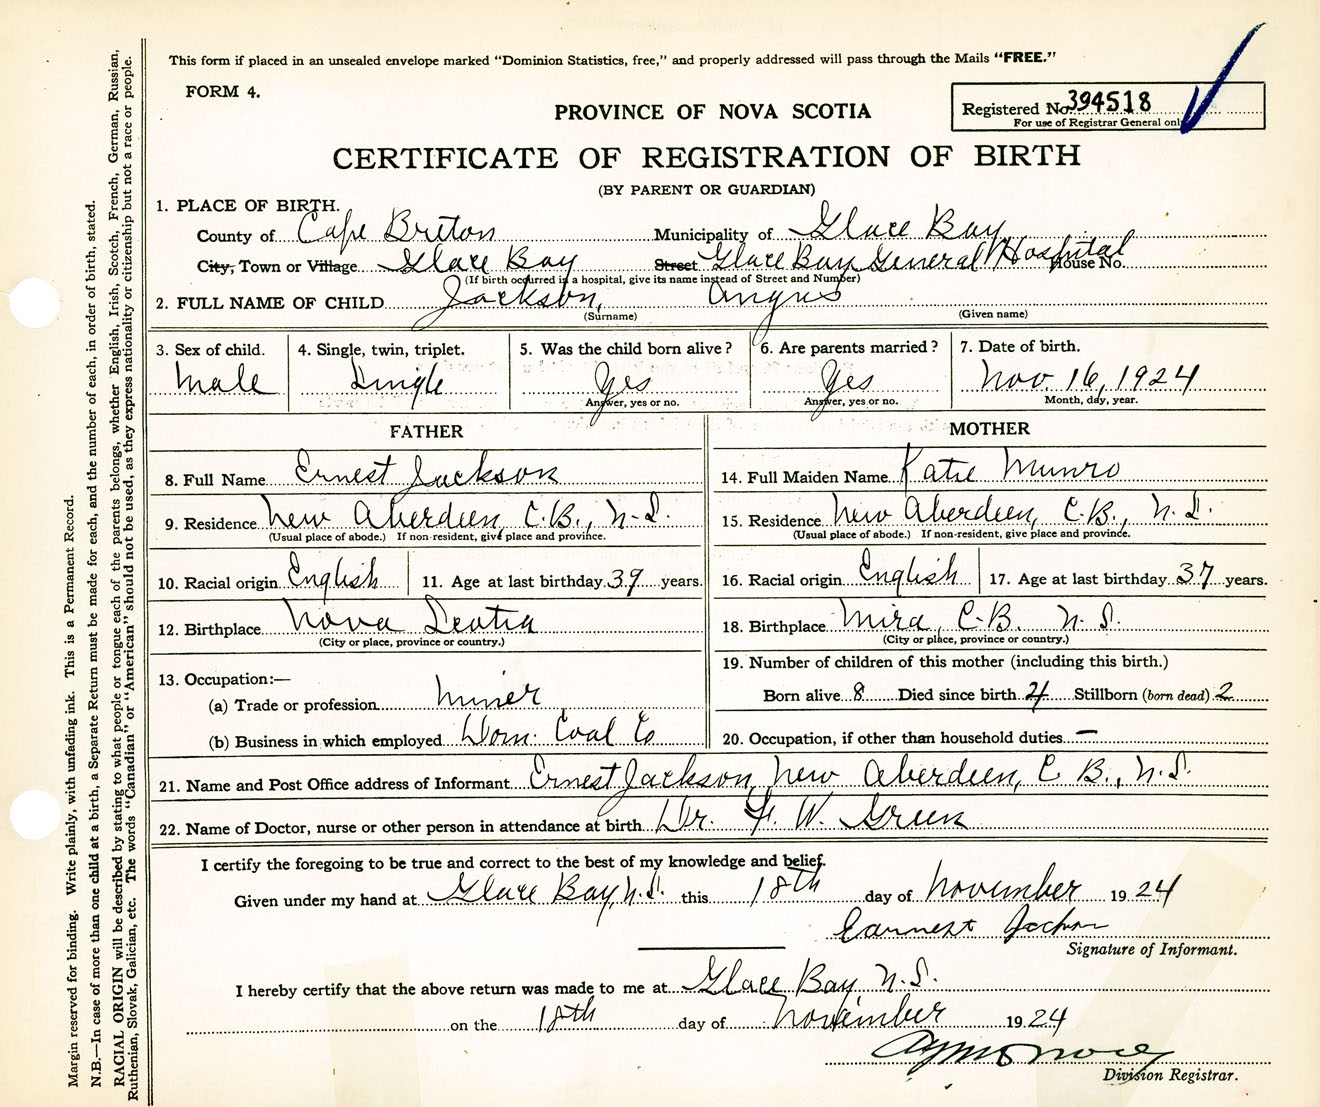 This form if placed in an unsealed envelope marked "Dominion Statistics, free," and properly addressed will pass through the Mails "FREE."
FORM 4.
PROVINCE OF NOVA SCOTIA
Registered No. 394518
For use of Registrar General only
CERTIFICATE OF REGISTRATION OF BIRTH
(BY PARENT OR GUARDIAN)
1. PLACE OF BIRTH.
County of Cape Breton Municipality of Glace Bay
City, Town or Village Glace Bay Street Glace Bay General Hospital House No.
(If birth occurred in a hospital, give its name instead of Street and Number)
2. FULL NAME OF CHILD Jackson, Angus
(Surname) (Given name)
3. Sex of child. 4. Single, twin, triplet. 5. Was the child born alive? 6. Are parents married? 7. Date of birth.
Male Single Yes Yes Nov 16, 1924
Answer, yes or no. Answer, yes or no. Month, day, year.
FATHER MOTHER
8. Full Name Ernest Jackson 14. Full Maiden Name Katie Munro
9. Residence New Aberdeen, C.B., N.S. 15. Residence New Aberdeen, C.B., N.S.
(Usual place of abode.) If non-resident, give place and province. (Usual place of abode.) If non-resident, give place and province.
10. Racial origin English 11. Age at last birthday 39 years. 16. Racial origin English 17. Age at last birthday 37 years.
12. Birthplace Nova Scotia 18. Birthplace Mira, C.B. N.S.
(City or place, province or country.) (City or place, province or country.)
13. Occupation:— 19. Number of children of this mother (including this birth.)
(a) Trade or profession Miner Born alive 8 Died since birth 4 Stillborn (born dead) 2
(b) Business in which employed Dom. Coal Co 20. Occupation, if other than household duties —
21. Name and Post Office address of Informant Ernest Jackson, New Aberdeen, C.B., N.S.
22. Name of Doctor, nurse or other person in attendance at birth Dr. F. W. Green
I certify the foregoing to be true and correct to the best of my knowledge and belief.
Given under my hand at Glace Bay, N.S. this 18th day of November 1924
Earnest Jackson
Signature of Informant.
I hereby certify that the above return was made to me at Glace Bay, N.S.
on the 18th day of November 1924
Division Registrar.
Margin reserved for binding. Write plainly, with unfading ink. This is a Permanent Record.
N.B.—In case of more than one child at a birth, a Separate Return must be made for each, and the number of each, in order of birth, stated.
RACIAL ORIGIN will be described by stating to what people or tongue each of the parents belongs, whether English, Irish, Scotch, French, German, Russian,
Ruthenian, Slovak, Galician, etc. The words "Canadian" or "American" should not be used, as they express nationality or citizenship but not a race or people.